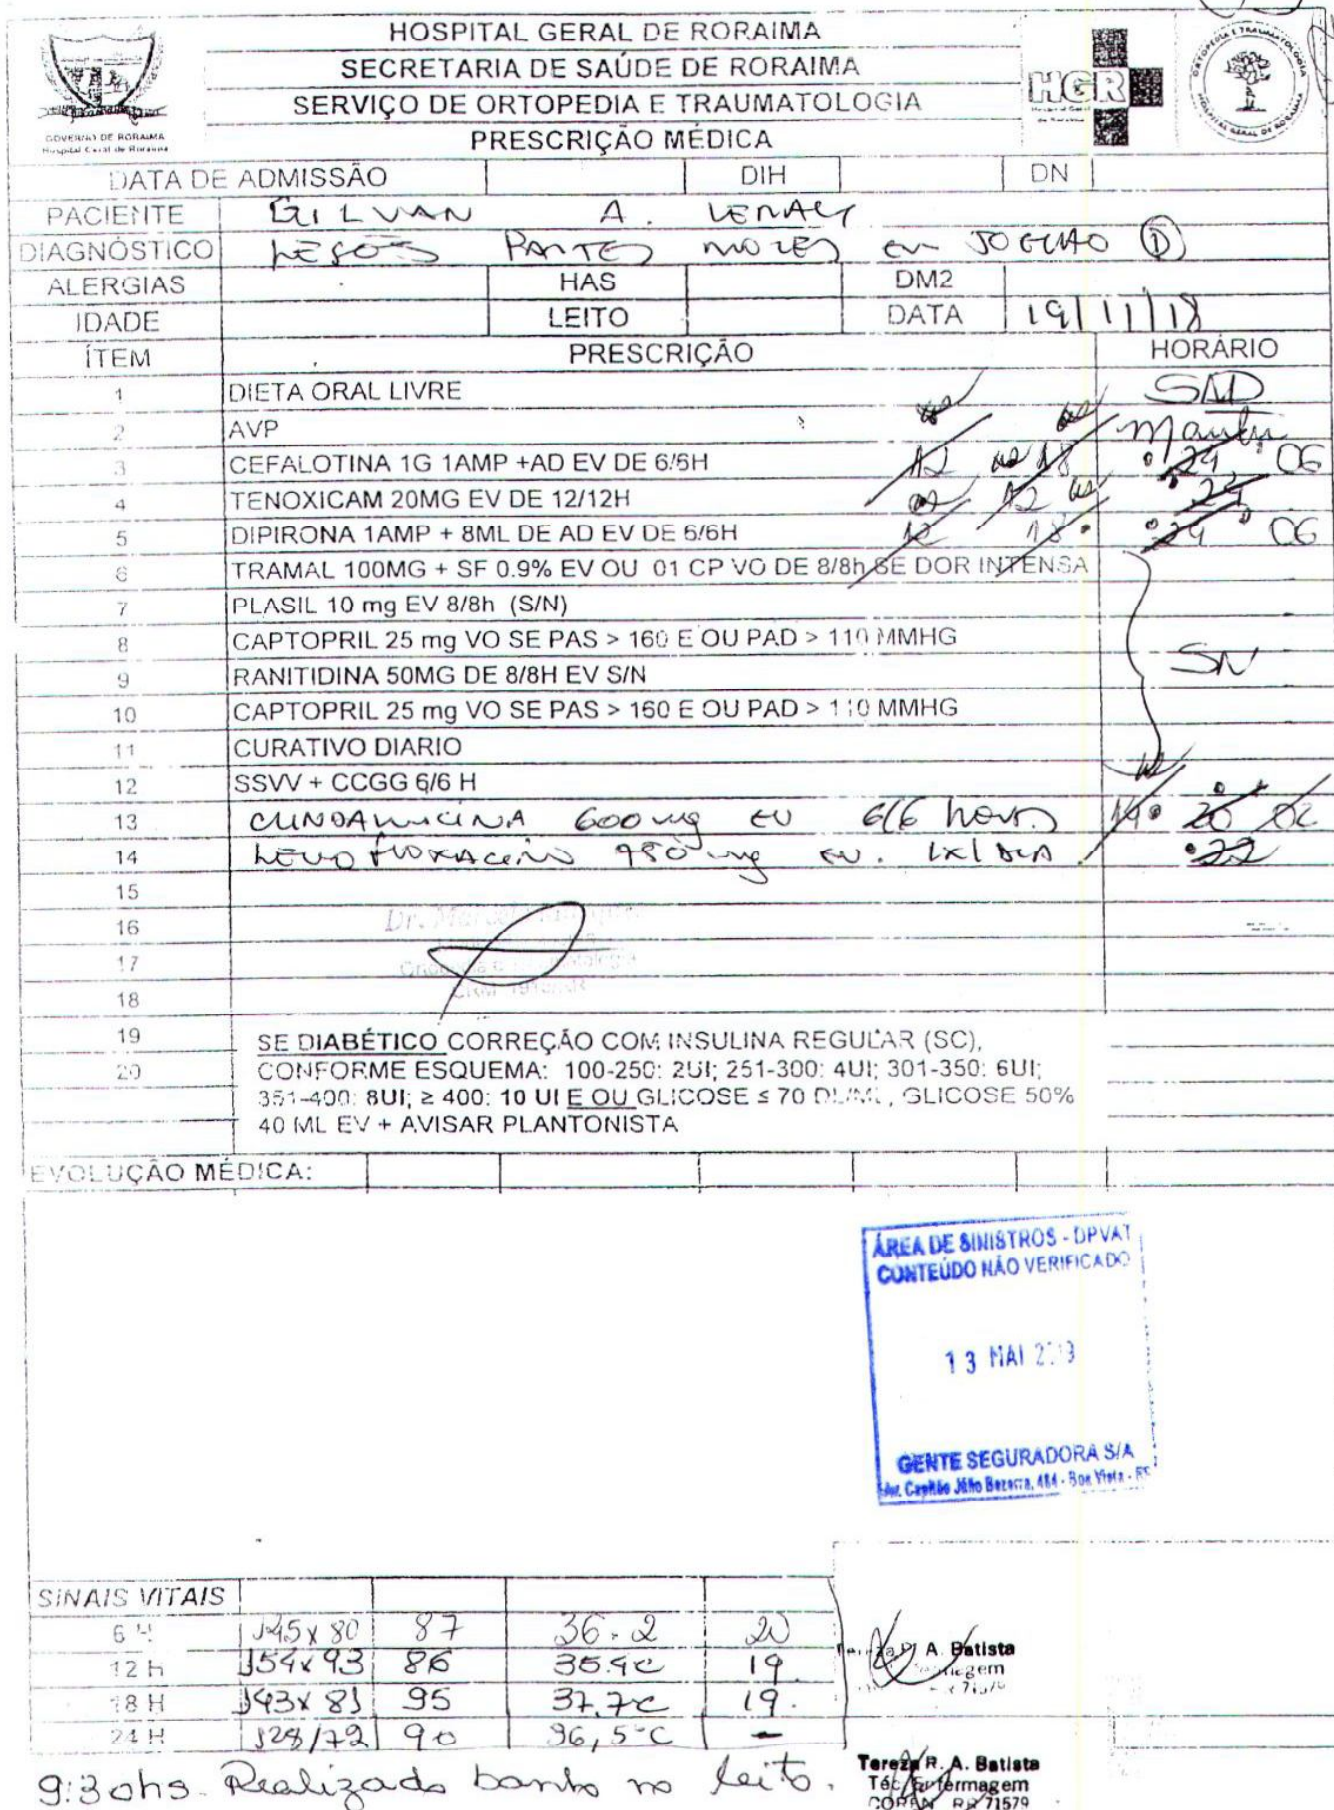 HOSPITAL GERAL DE RORAIMA
SECRETARIA DE SAÚDE DE RORAIMA
SERVIÇO DE ORTOPEDIA E TRAUMATOLOGIA
PRESCRIÇÃO MÉDICA
GOVERNO DE RORAIMA
Hospital Geral de Roraima
HGR
ORTOPEDIA E TRAUMATOLOGIA
HOSPITAL GERAL DE RORAIMA
DATA DE ADMISSÃO DIH DN
PACIENTE GILVAN A.
DIAGNÓSTICO LESÕES PARTES MOLES EM JOELHO D
ALERGIAS HAS DM2
IDADE LEITO DATA 19/11/18
ÍTEM PRESCRIÇÃO HORÁRIO
1 DIETA ORAL LIVRE SND
2 AVP
3 CEFALOTINA 1G 1AMP +AD EV DE 6/6H 12 18 24 06
4 TENOXICAM 20MG EV DE 12/12H
5 DIPIRONA 1AMP + 8ML DE AD EV DE 6/6H 12 18 24 06
6 TRAMAL 100MG + SF 0.9% EV OU 01 CP VO DE 8/8h SE DOR INTENSA
7 PLASIL 10 mg EV 8/8h (S/N)
8 CAPTOPRIL 25 mg VO SE PAS > 160 E OU PAD > 110 MMHG
9 RANITIDINA 50MG DE 8/8H EV S/N SN
10 CAPTOPRIL 25 mg VO SE PAS > 160 E OU PAD > 110 MMHG
11 CURATIVO DIARIO
12 SSVV + CCGG 6/6 H
13 CLINDAMICINA 600 mg EV 6/6 horas 14 20 02
14 LEVOFLOXACINO mg EV. 1x/DIA 22
15
16
17
18
19 SE DIABÉTICO CORREÇÃO COM INSULINA REGULAR (SC),
20 CONFORME ESQUEMA: 100-250: 2UI; 251-300: 4UI; 301-350: 6UI;
351-400: 8UI; ≥ 400: 10 UI E OU GLICOSE ≤ 70 DL/ML, GLICOSE 50%
40 ML EV + AVISAR PLANTONISTA
EVOLUÇÃO MÉDICA:
ÁREA DE SINISTROS - DPVAT
CONTEÚDO NÃO VERIFICADO
13 MAI
GENTE SEGURADORA S/A
Av. Capitão Júlio Bezerra, 484 - Boa Vista - RR
SINAIS VITAIS
6 H 145x80 87 36.2 20
12 h 154x93 86 35.4c 19
18 H 143x81 95 37.7c 19.
24 H 128/72 90 36,5°C -
A. Batista
9:30hs. Realizado banho no leito.
Tereza R. A. Batista
Téc. Enfermagem
COREN RR 71579